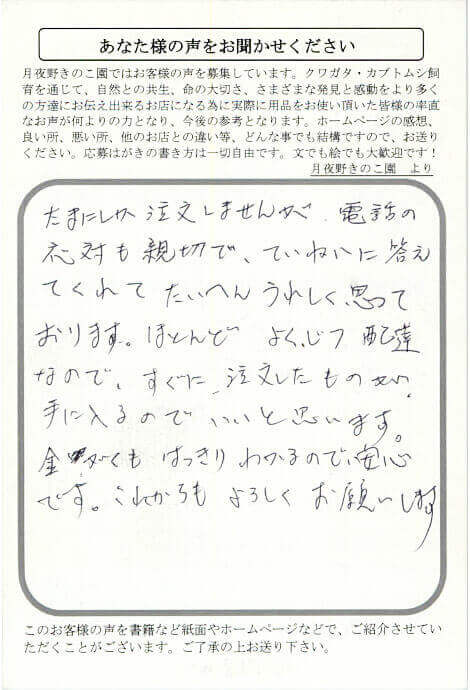 あなた様の声をお聞かせください
月夜野きのこ園ではお客様の声を募集しています。クワガタ・カブトムシ飼
育を通じて、自然との共生、命の大切さ、さまざまな発見と感動をより多く
の方達にお伝え出来るお店になる為に実際に用品をお使い頂いた皆様の率直
なお声が何よりの力となり、今後の参考となります。ホームページの感想、
良い所、悪い所、他のお店との違い等、どんな事でも結構ですので、お送り
ください。応募はがきの書き方は一切自由です。文でも絵でも大歓迎です！
月夜野きのこ園　より
たまにしか 注文しませんが、電話の
応対も 親切で、ていねいに 答え
てくれて たいへん うれしく 思って
おります。ほとんど よくじつ 配達
なので、すぐに、注文したものが
手に入るので いいと思います。
金がくも はっきり わかるので 安心
です。これからも よろしく お願いします
このお客様の声を書籍など紙面やホームページなどで、ご紹介させてい
ただくことがございます。ご了承の上お送り下さい。